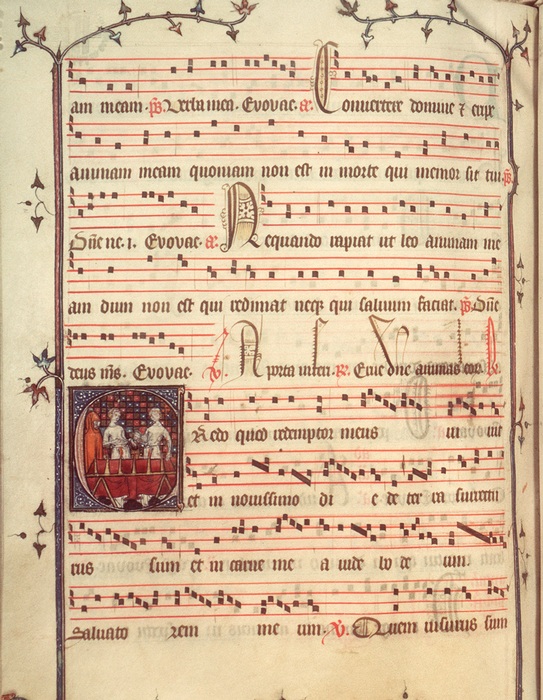 am meam. ps. Verba mea. Evovae. a. Convertere domine et eripe
animam meam quoniam non est in morte qui memor sit tui. ps.
Dñe ne. i. Evovae. a. Nequando rapiat ut leo animam me
am dum non est qui redimat neqz qui salvum faciat. ps. Dñe
deus ms. Evovae. V. A porta inferi. R. Erue dne animas eor.
Credo quod redemptor meus vi vit
et in novissimo di e de ter ra surrectu
rus sum et in carne me a vide bo de um
salvato rem me um. V. Quem visurus sum